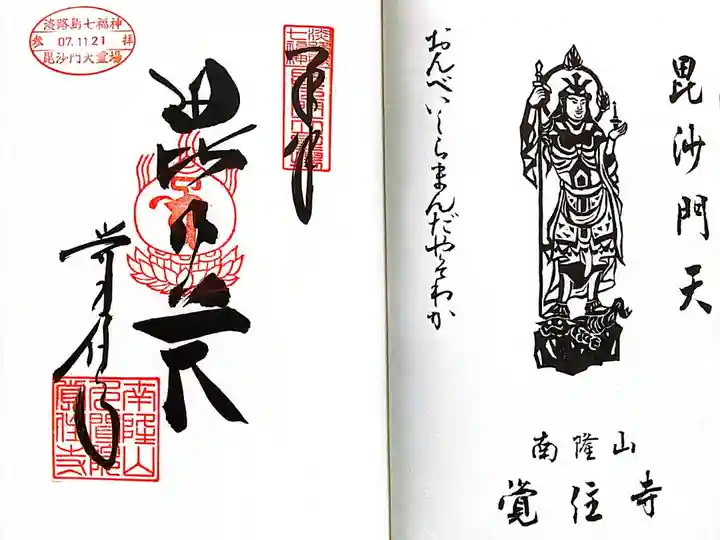 淡路島七福神
参 07.11.21 拝
毘沙門天霊場
奉拝
毘沙門天
覚住寺
南隆山
覚住寺
毘沙門天
おんべいしらまんだやそわか
南隆山
覚住寺